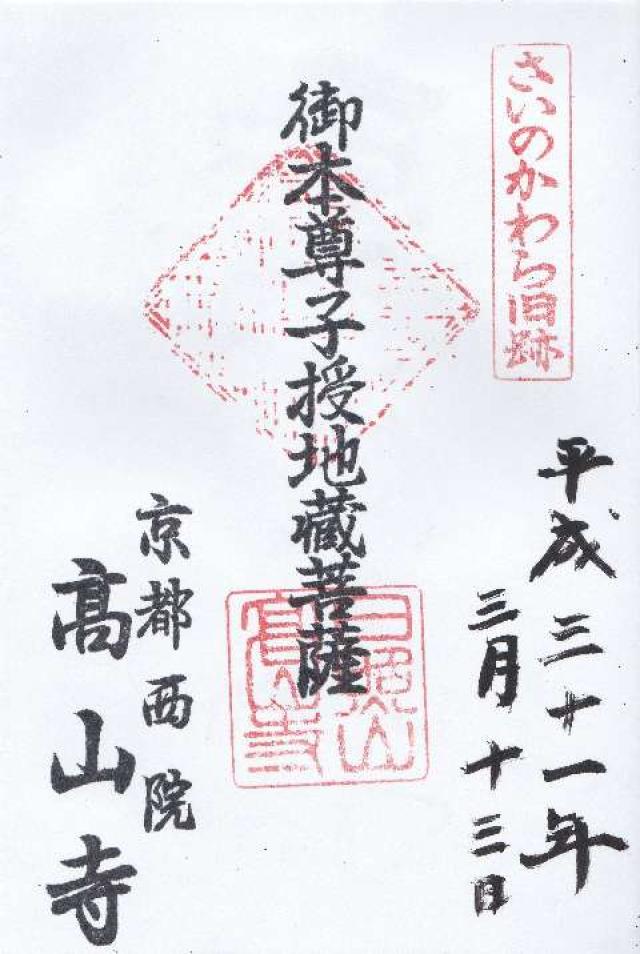 さいのかわら旧跡
平成三十一年
三月十三日
御本尊子授地蔵菩薩
京都西院
高山寺